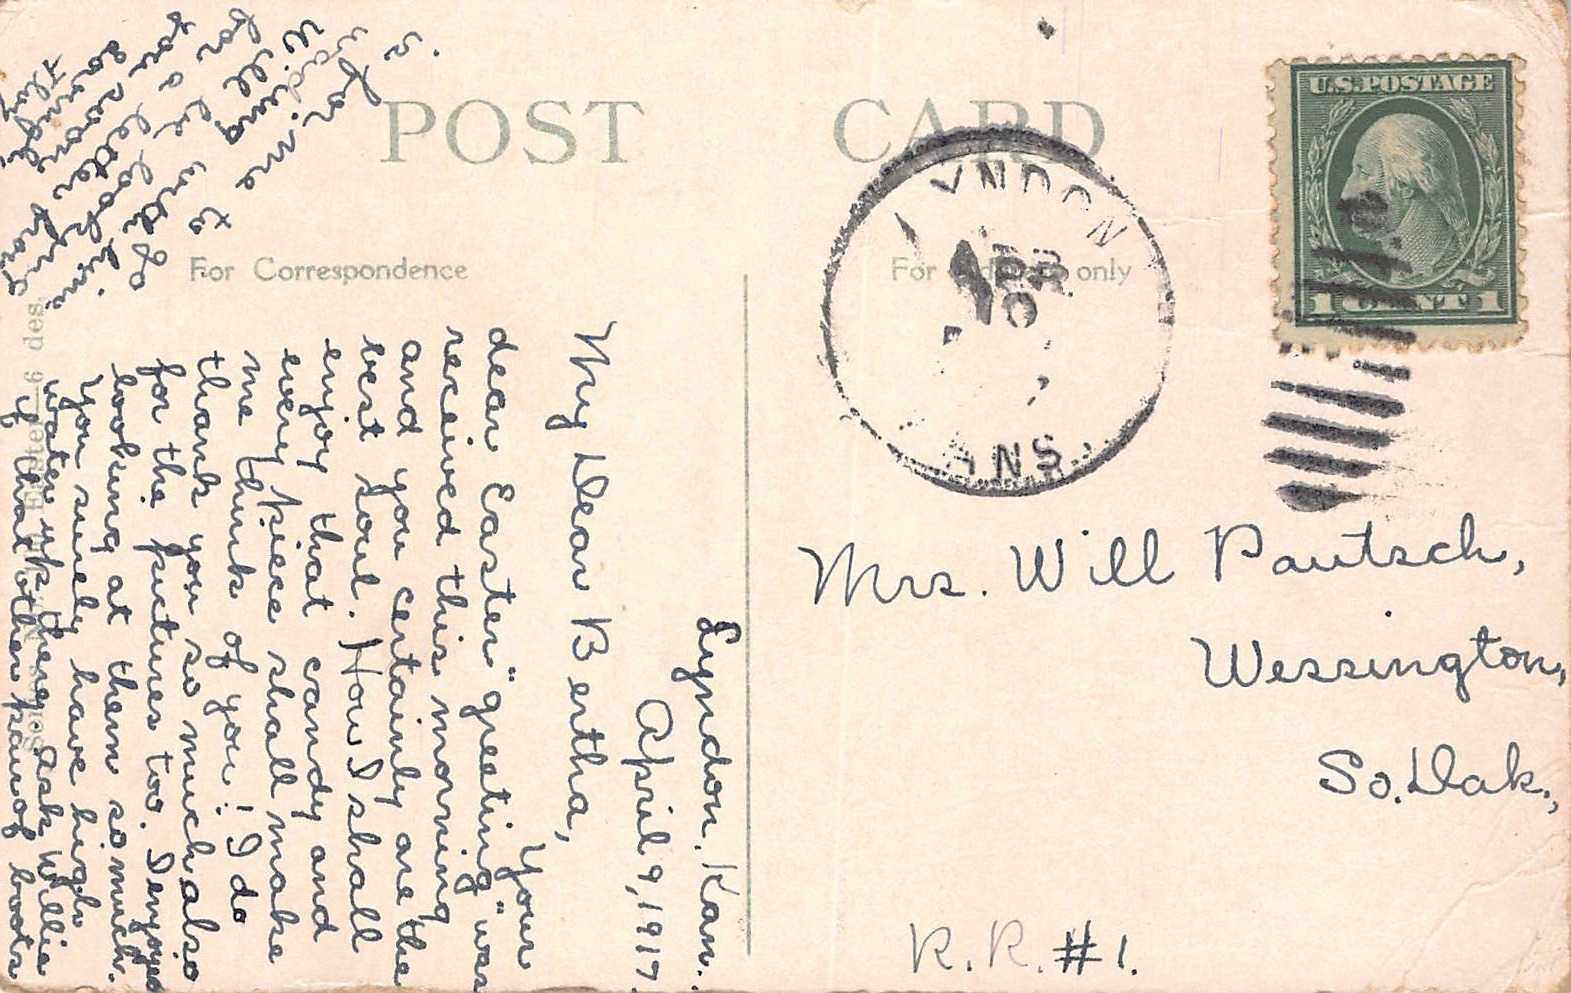 POST CARD
For Correspondence
For Address only
U.S. POSTAGE
1 CENT 1
LYNDON
APR
KANS.
Mrs. Will Pautsch,
Wessington,
So. Dak.,
R.R. #1.
Lyndon, Kan.
April 9, 1917.
My Dear Bertha,
Your
dear Easter "greeting" was
received this morning
and you certainly are the
best soul. How I shall
enjoy that candy and
every piece shall make
me think of you! I do
thank you so much also
for the pictures too. I enjoyed
looking at them so much.
You surely have high
water up there. Ask Willie
if that other pair of boots
is for
me
for a letter
soon